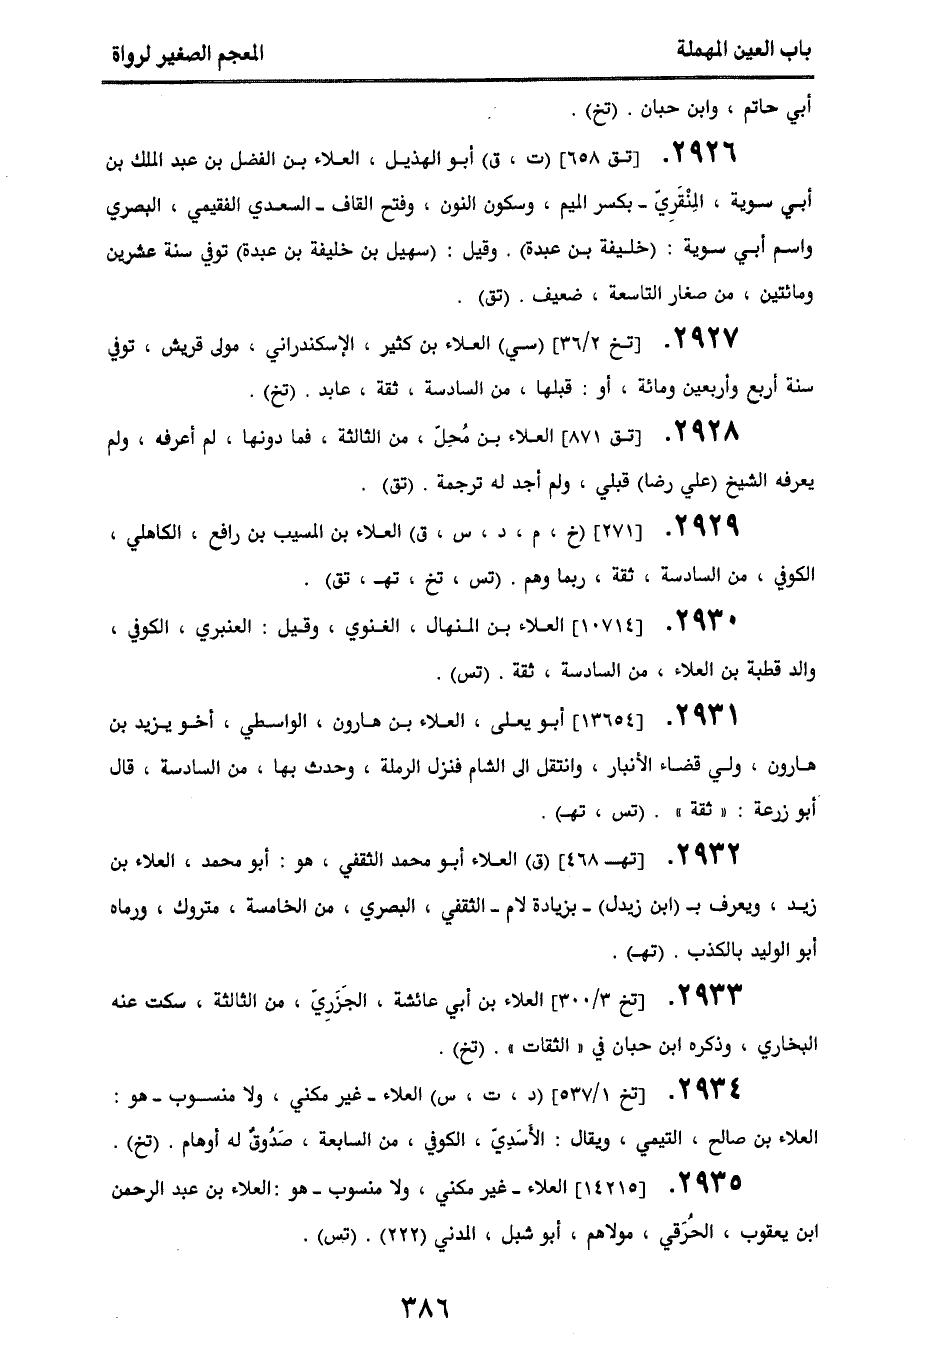 باب العين المهملة
المعجم الصغير لرواة
أبي حاتم ، وابن حبان . (تخ) .
٢٩٢٦. [تق ٦٥٨] (ت ، ق) أبو الهذيل ، العلاء بن الفضل بن عبد الملك بن
أبي سوية ، المِنْقَرِيّ ـ بكسر الميم ، وسكون النون ، وفتح القاف ـ السعدي الفقيمي ، البصري
واسم أبي سوية : (خليفة بن عبدة) . وقيل : (سهيل بن خليفة بن عبدة) توفي سنة عشرين
ومائتين ، من صغار التاسعة ، ضعيف . (تق) .
٢٩٢٧. [تخ ٣٦/٢] (سي) العلاء بن كثير ، الإسكندراني ، مولى قريش ، توفي
سنة أربع وأربعين ومائة ، أو : قبلها ، من السادسة ، ثقة ، عابد . (تخ) .
٢٩٢٨. [تق ٨٧١] العلاء بن مُحِلّ ، من الثالثة ، فما دونها ، لم أعرفه ، ولم
يعرفه الشيخ (علي رضا) قبلي ، ولم أجد له ترجمة . (تق) .
٢٩٢٩. [٢٧١] (خ ، م ، د ، س ، ق) العلاء بن المسيب بن رافع ، الكاهلي ،
الكوفي ، من السادسة ، ثقة ، ربما وهم . (تس ، تخ ، تهـ ، تق) .
٢٩٣٠. [١٠٧١٤] العلاء بن المنهال ، الغنوي ، وقيل : العنبري ، الكوفي ،
والد قطبة بن العلاء ، من السادسة ، ثقة . (تس) .
٢٩٣١. [١٣٦٥٤] أبو يعلى ، العلاء بن هارون ، الواسطي ، أخو يزيد بن
هارون ، ولي قضاء الأنبار ، وانتقل الى الشام فنزل الرملة ، وحدث بها ، من السادسة ، قال
أبو زرعة : « ثقة » . (تس ، تهـ) .
٢٩٣٢. [تهـ ٤٦٨] (ق) العلاء أبو محمد الثقفي ، هو : أبو محمد ، العلاء بن
زيد ، ويعرف بـ (ابن زيدل) ـ بزيادة لام ـ الثقفي ، البصري ، من الخامسة ، متروك ، ورماه
أبو الوليد بالكذب . (تهـ) .
٢٩٣٣. [تخ ٣٠٠/٣] العلاء بن أبي عائشة ، الجَزَرِيّ ، من الثالثة ، سكت عنه
البخاري ، وذكره ابن حبان في « الثقات » . (تخ) .
٢٩٣٤. [تخ ٥٣٧/١] (د ، ت ، س) العلاء ـ غير مكني ، ولا منسوب ـ هو :
العلاء بن صالح ، التيمي ، ويقال : الأَسَدِيّ ، الكوفي ، من السابعة ، صَدُوقٌ له أوهام . (تخ) .
٢٩٣٥. [١٤٢١٥] العلاء ـ غير مكني ، ولا منسوب ـ هو :العلاء بن عبد الرحمن
ابن يعقوب ، الحُرَقي ، مولاهم ، أبو شبل ، المدني (٢٢٢) . (تس) .
٣٨٦